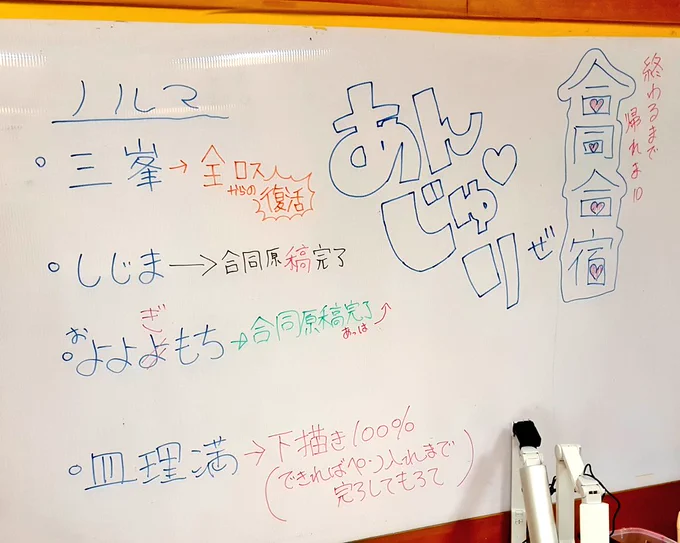 ノルマ
三峯→全ロスからの復活
しじま→合同原稿完了
およよよもち→合同原稿完了
ぎ
あっは
皿理満→下描き100%
(できればペン入れまで
完了してもろて)
あん♡
じゅ
リぜ
合同合宿
終わるまで
帰れま10